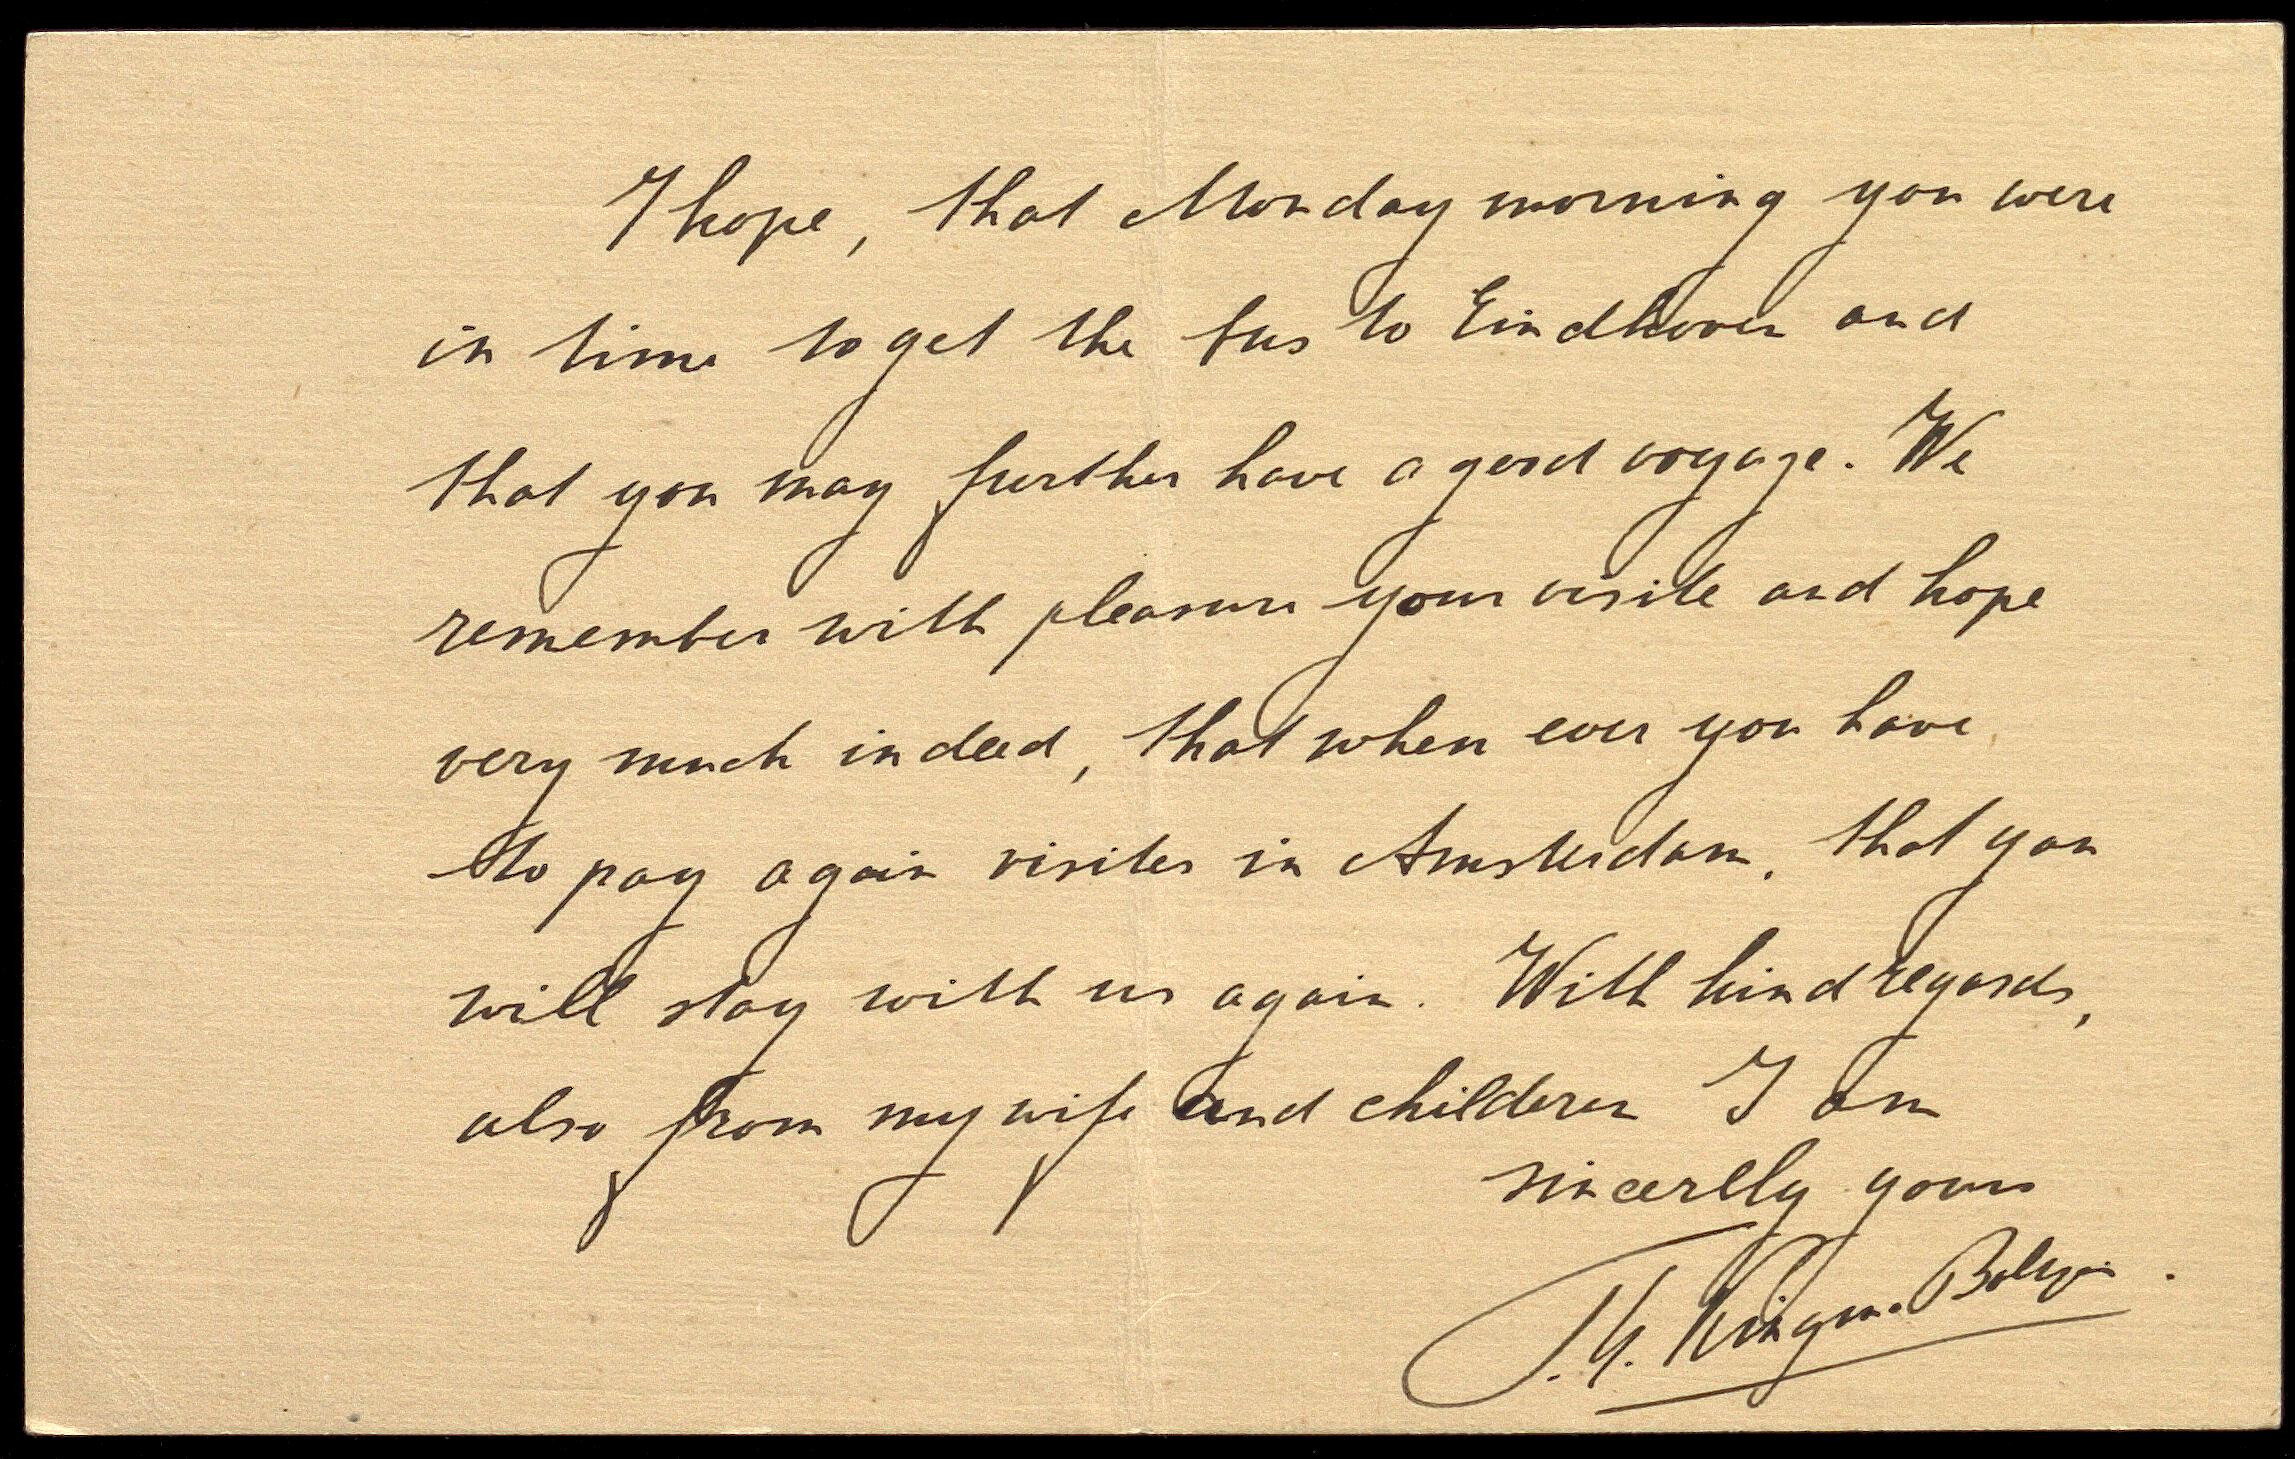 I hope, that Monday morning you were
in time to get the bus to Eindhoven and
that you may further have a good voyage. We
remember with pleasure your visite and hope
very much indeed, that when ever you have
to pay again visites in Amsterdam, that you
will stay with us again. With kind regards,
also from my wife and childeren I am
sincerelly yours
T. G. Kingma Boltjes.